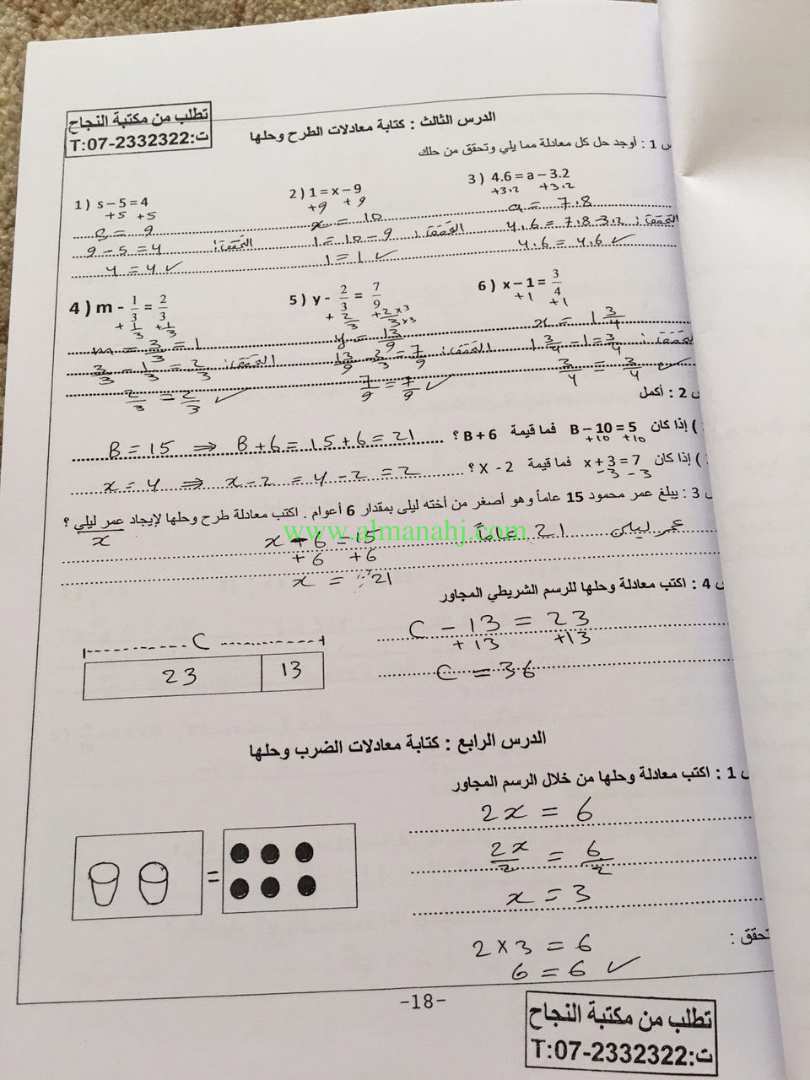 تطلب من مكتبة النجاح
ت:T:07-2332322
الدرس الثالث : كتابة معادلات الطرح وحلها
س 1 : أوجد حل كل معادلة مما يلي وتحقق من حلك
1 ) s – 5 = 4
+5 +5
s = 9
9 – 5 = 4 التحقق:
4 = 4 ✓
2 ) 1 = x – 9
+9 +9
x = 10
1 = 10 – 9 التحقق:
1 = 1 ✓
3 ) 4.6 = a – 3.2
+3.2 +3.2
a = 7.8
4.6 = 7.8 - 3.2 التحقق:
4.6 = 4.6 ✓
4 ) m - 1/3 = 2/3
+ 1/3 + 1/3
m = 3/3 = 1
3/3 – 1/3 = 2/3 التحقق:
2/3 = 2/3 ✓
5 ) y - 2/3 = 7/9
+ 2/3 + 2×3/3×3
y = 13/9
7/9 = 7/9 ✓
6 ) x – 1 = 3/4
+1 +1
x = 1 3/4
1 3/4 – 1 = 3/4 التحقق:
3/4 = 3/4 ✓
س 2 : أكمل
) إذا كان B – 10 = 5 فما قيمة B + 6 ؟
+10 +10
B = 15 ⇒ B + 6 = 15 + 6 = 21
) إذا كان x + 3 = 7 فما قيمة X - 2 ؟
–3 –3
x = 4 ⇒ x – 2 = 4 – 2 = 2
س 3 : يبلغ عمر محمود 15 عاماً وهو أصغر من أخته ليلى بمقدار 6 أعوام . اكتب معادلة طرح وحلها لإيجاد عمر ليلى ؟
x
www.almanahj.com
عمر ليلى 21 عاماً
x – 6 = 15
+6 +6
x = 21
س 4 : اكتب معادلة وحلها للرسم الشريطي المجاور
C – 13 = 23
+13 +13
C = 36
C
23 13
الدرس الرابع : كتابة معادلات الضرب وحلها
س 1 : اكتب معادلة وحلها من خلال الرسم المجاور
2x = 6
2x/2 = 6/2
x = 3
=
تحقق :
2 × 3 = 6
6 = 6 ✓
-18-
تطلب من مكتبة النجاح
ت:T:07-2332322